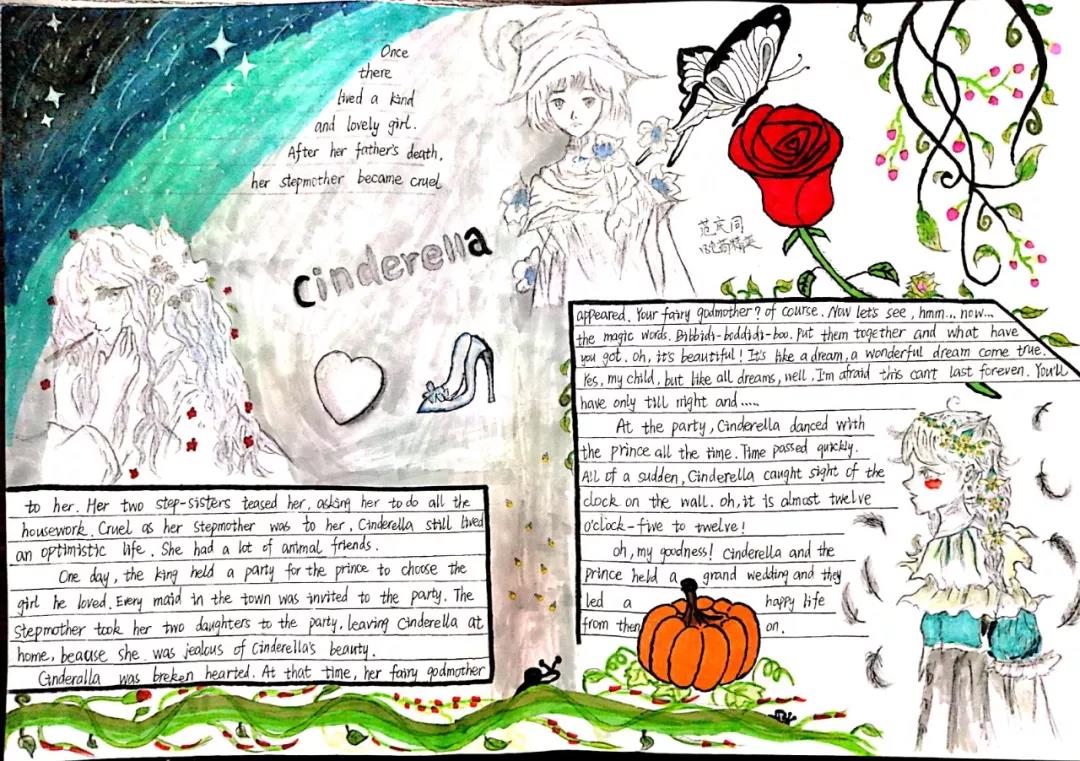 Once
there
lived a kind
and lovely girl.
After her father's death,
her stepmother became cruel
cinderella
to her. Her two step-sisters teased her, asking her to do all the
housework. Cruel as her stepmother was to her, Cinderella still lived
an optimistic life. She had a lot of animal friends.
One day, the king held a party for the prince to choose the
girl he loved. Every maid in the town was invited to the party. The
stepmother took her two daughters to the party, leaving Cinderella at
home, beause she was jealous of Cinderella's beauty.
Cinderalla was breken hearted. At that time, her fairy godmother
范庆同
appeared. Your fairy godmother? of course. Now let's see, hmm... now...
the magic words. Bibbidi-boddidi-boo. Put them together and what have
you got. oh, it's beautiful! It's like a dream, a wonderful dream come true.
Yes, my child, but like all dreams, well, I'm afraid this can't last foreven. You'll
have only till night and.....
At the party, Cinderella danced with
the prince all the time. Time passed quickly.
All of a sudden, Cinderella caught sight of the
clock on the wall. oh, it is almost twelve
o'clock-five to twelve!
oh, my goodness! Cinderella and the
prince held a grand wedding and they
led a happy life
from then on.